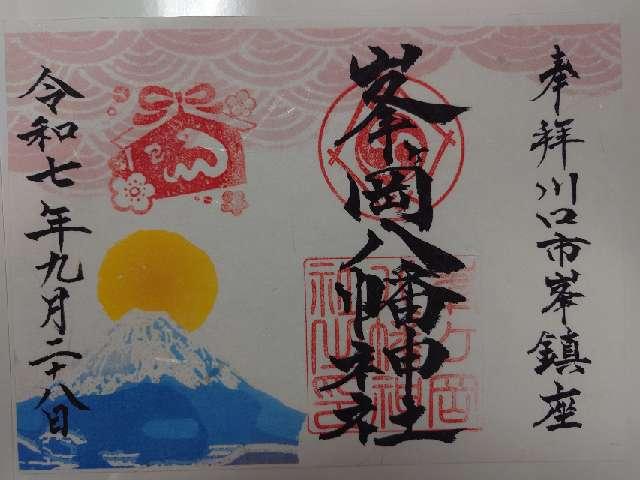 奉拝川口市峯鎮座
峯ヶ岡八幡神社
令和七年九月二十八日